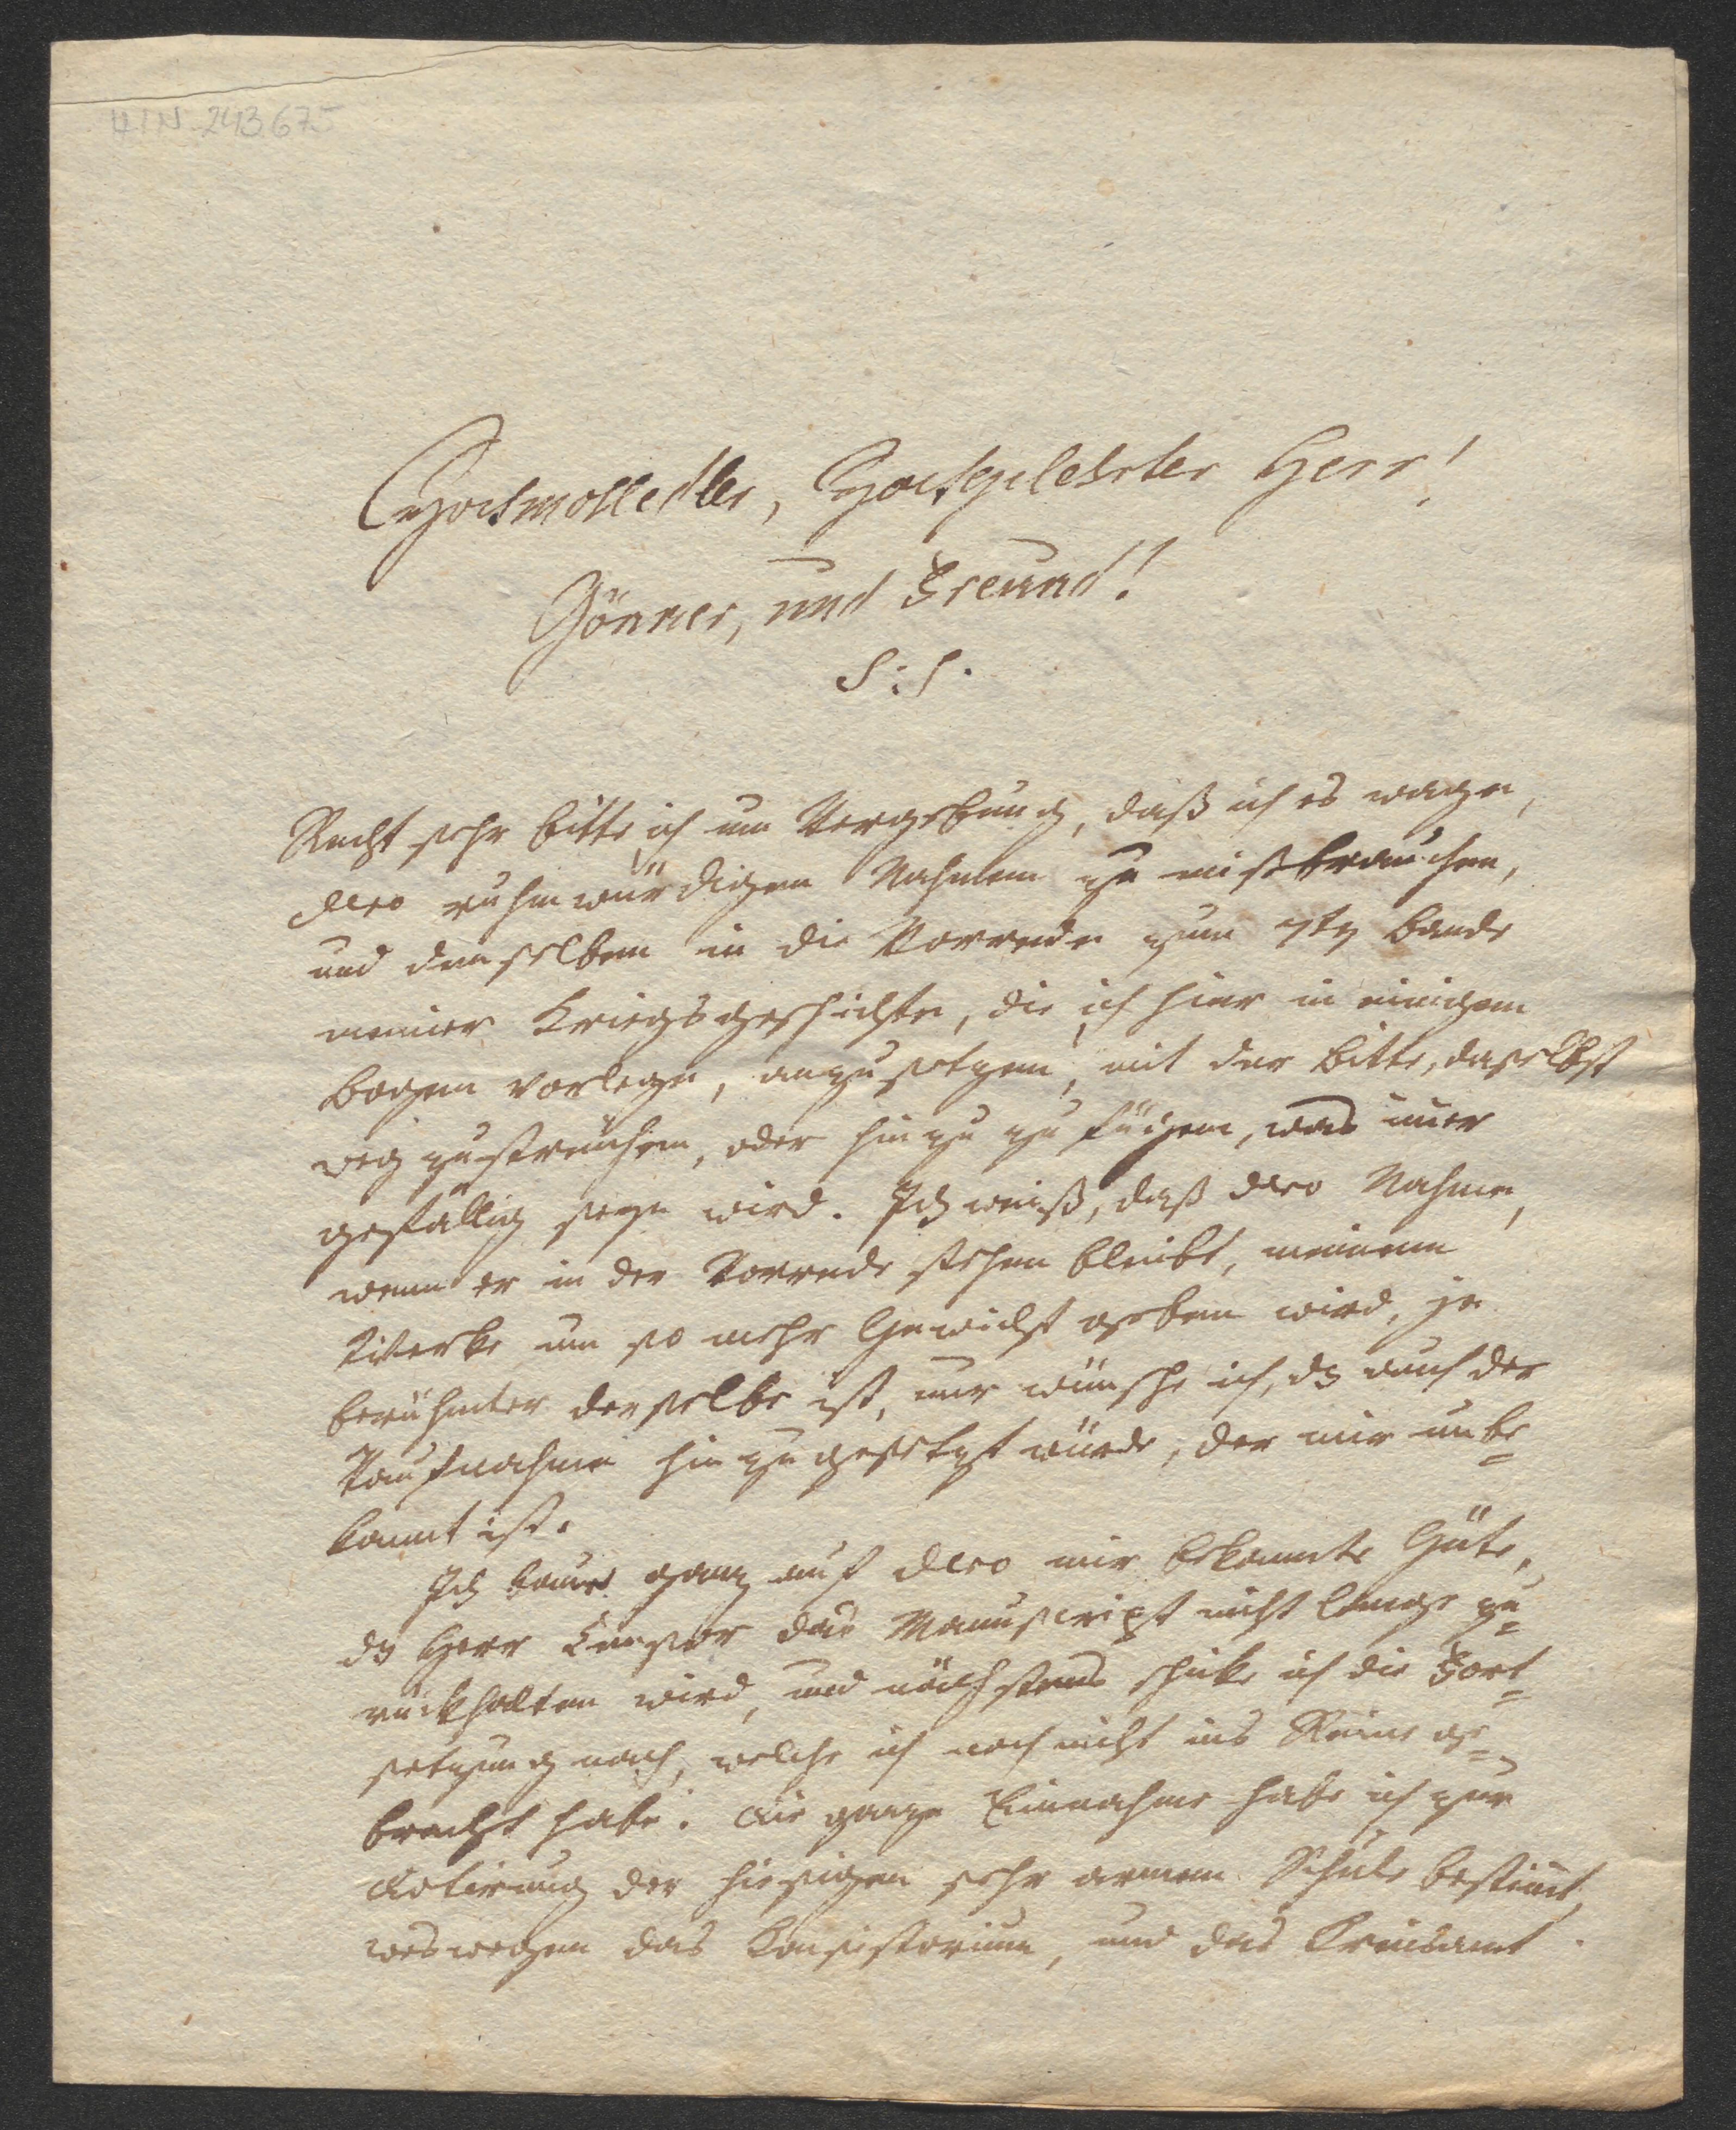 HIN-243.675
Hochwolledler, Hochgelehrter Herr!
Gönner, und Freund!
S:S.
Recht sehr bitte ich um Vergebung, daß ich es wage,
dero ruhmwürdigen Nahmen zu mißbrauchen,
und denselben in die Vorrede zum 7tn Bande
meiner Kriegsgeschichte, die ich hier in einigen
Bogen vorlege, anzusetzen, mit der Bitte, daselbst
weg zustreichen, oder hin zu zu fügen, was imer
gefällig seyn wird. Ich weiß, daß dero Nahme,
wenn er in der Vorrede stehen bleibt, meinem
Werke um so mehr Gewicht geben wird, je
berühmter derselbe ist, nur wünsche ich, dz auch der
Taufnahme hin zu gesetzt würde, der mir unbe=
kannt ist.
Ich baue ganz auf dero mir bekannte Güte,
dz Herr Censor das Manuscript nicht lange zu=
rückhalten wird, und nächstens schike ich die Fort=
setzung nach, welche ich noch nicht ins Reine ge=
bracht habe. Die ganze Einnahme habe ich zur
Dotirung der hiesigen sehr armen Schule bestimt,
weswegen das Consistorium, und das Kreisamt